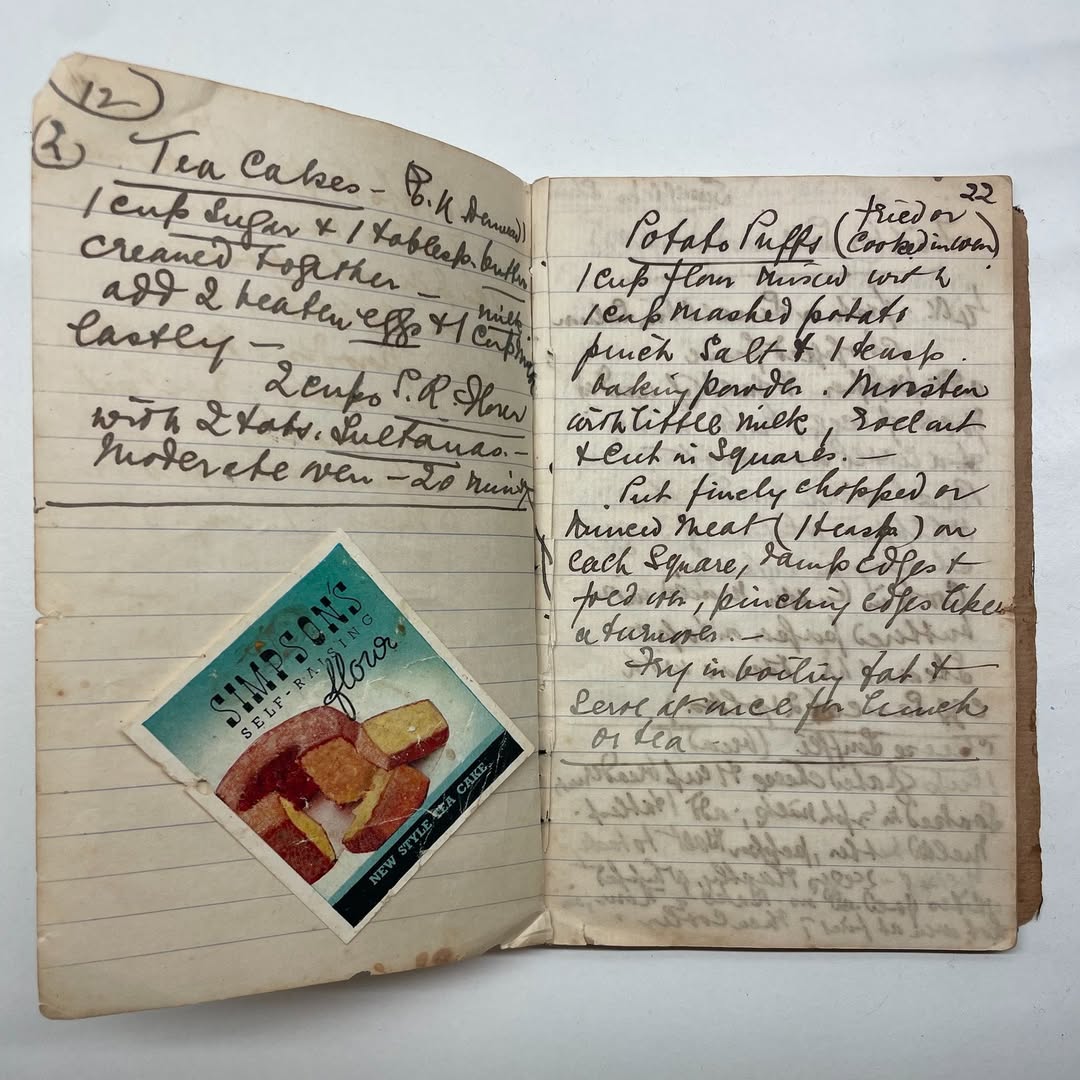 12
2
Tea Cakes -
1 cup Sugar & 1 tablesp. butter
creamed together -
add 2 beaten eggs & 1 cup milk
lastly -
2 cups S.R. Flour
with 2 tabs. Sultanas. -
Moderate oven - 20 mins
SIMPSON'S
SELF-RAISING
flour
NEW STYLE TEA CAKE
22
Potato Puffs (fried or
cooked in oven)
1 cup flour mixed with
1 cup mashed potato
pinch Salt & 1 teasp.
baking powder. Moisten
with little milk, roll out
& cut in Squares. -
Put finely chopped or
minced meat (1 teasp) on
each Square, damp edges &
fold over, pinching edges like
a turnover. -
Fry in boiling fat &
Serve at once for Lunch
or tea